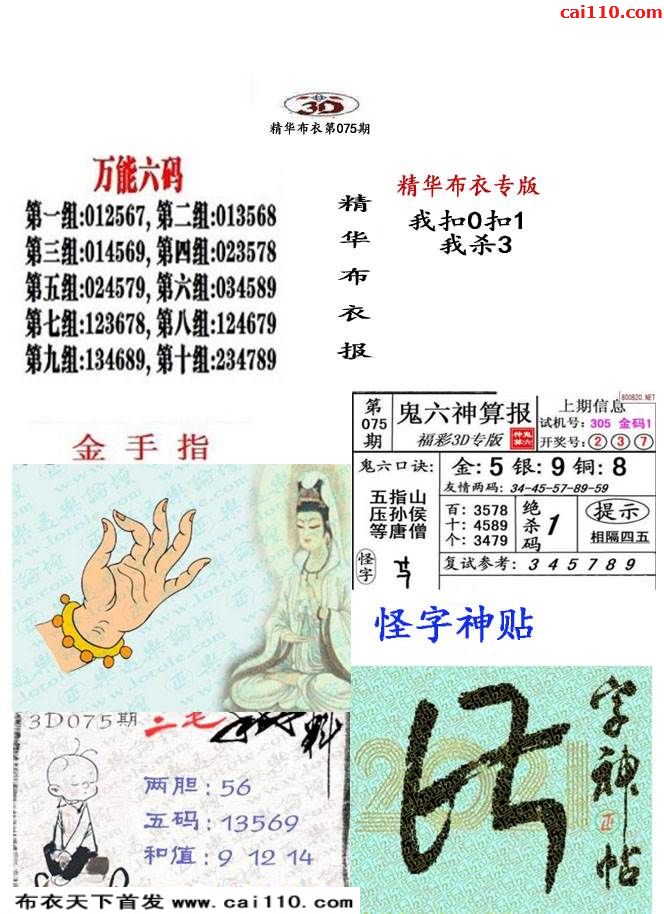 cai110.com
3D
精华布衣第075期
万能六码
第一组:012567, 第二组:013568
第三组:014569, 第四组:023578
第五组:024579, 第六组:034589
第七组:123678, 第八组:124679
第九组:134689, 第十组:234789
精华布衣报
精华布衣专版
我扣0扣1
我杀3
金手指
800820.NET
第075期
鬼六神算报
福彩3D专版
上期信息
试机号: 305 金码1
开奖号: 2 3 7
鬼六口诀:
五指山
压孙侯
等唐僧
怪字
金: 5 银: 9 铜: 8
友情两码: 34-45-57-89-59
百: 3578
十: 4589
个: 3479
绝杀码
1
提示
相隔四五
复试参考: 3 4 5 7 8 9
怪字神贴
字神帖
2021
3D075期
两胆: 56
五码: 13569
和值: 9 12 14
布衣天下首发 www.cai110.com